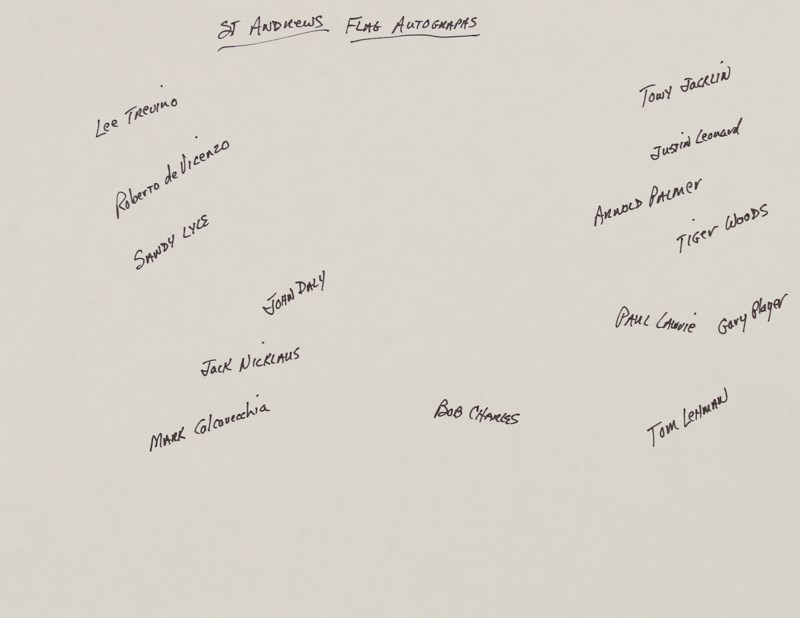 ST ANDREWS FLAG AUTOGRAPAS
Lee Trevino
Tony Jacklin
Roberto de Vicenzo
Justin Leonard
Arnold Palmer
Sandy Lyle
Tiger Woods
John Daly
Paul Lawrie Gary Player
Jack Nicklaus
Mark Calcavecchia
Bob Charles
Tom Lehman